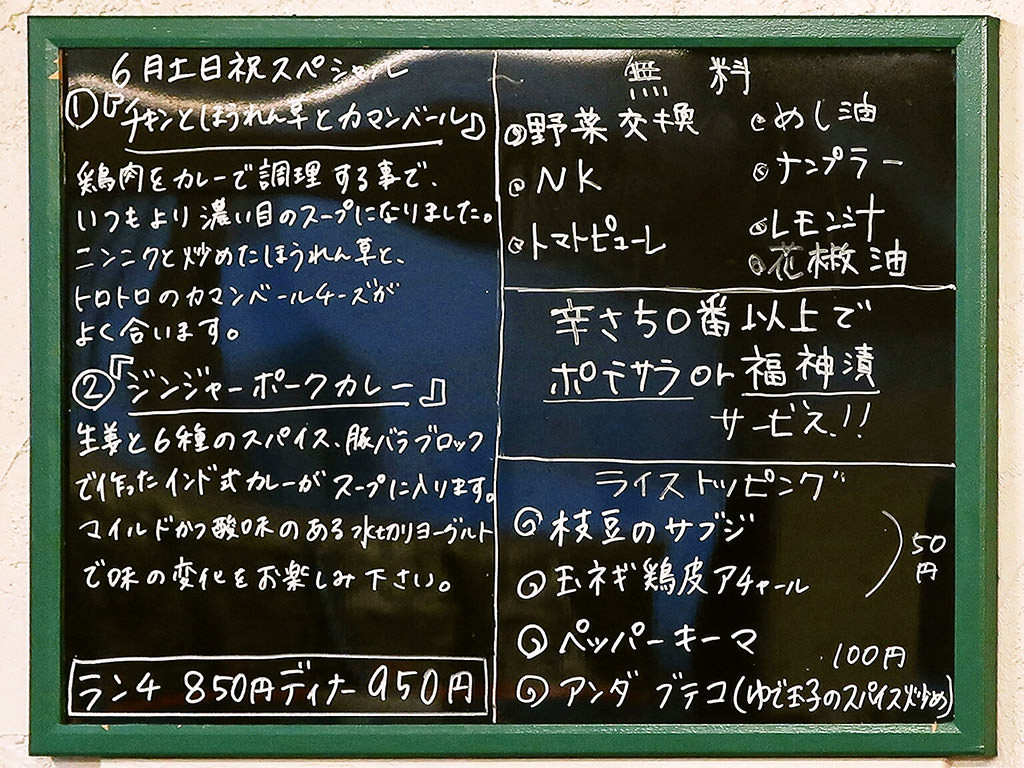 6月土日祝スペシャル
①『チキンとほうれん草とカマンベール』
鶏肉をカレーで調理する事で、
いつもより濃い目のスープになりました。
ニンニクと炒めたほうれん草と、
トロトロのカマンベールチーズが
よく合います。
②『ジンジャーポークカレー』
生姜と6種のスパイス、豚バラブロック
で作ったインド式カレーがスープに入ります。
マイルドかつ酸味のある水切りヨーグルト
で味の変化をお楽しみ下さい。
ランチ 850円 ディナー 950円
無料
野菜交換
めし油
NK
ナンプラー
トマトピューレ
レモン汁
花椒油
辛さ50番以上で
ポテサラ or 福神漬
サービス!!
ライストッピング
枝豆のサブジ
玉ネギ鶏皮アチャール
50円
ペッパーキーマ
100円
アンダ ブテコ(ゆで玉子のスパイス炒め)